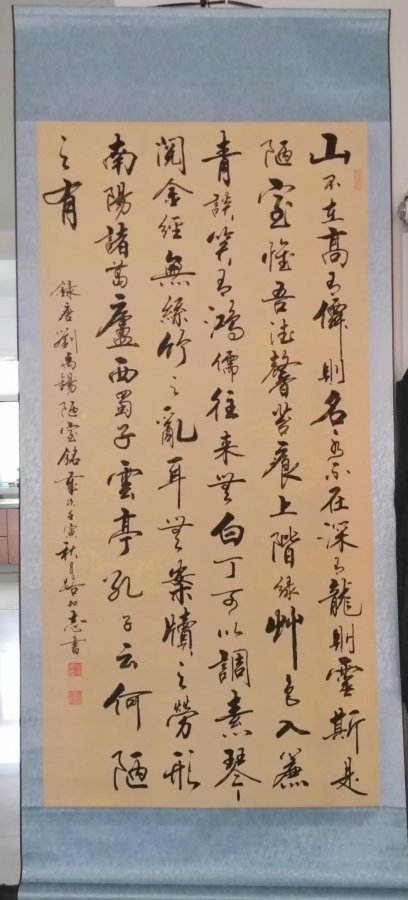 山不在高有僊則名水不在深有龍則靈斯是
陋室惟吾德馨苔痕上階綠艸色入簾
青談笑有鴻儒往来無白丁可以調素琴
閱金經無絲竹之亂耳無案牘之勞形
南陽諸葛廬西蜀子雲亭孔子云何陋
之有
錄唐劉禹錫陋室銘歲次壬寅秋月志書